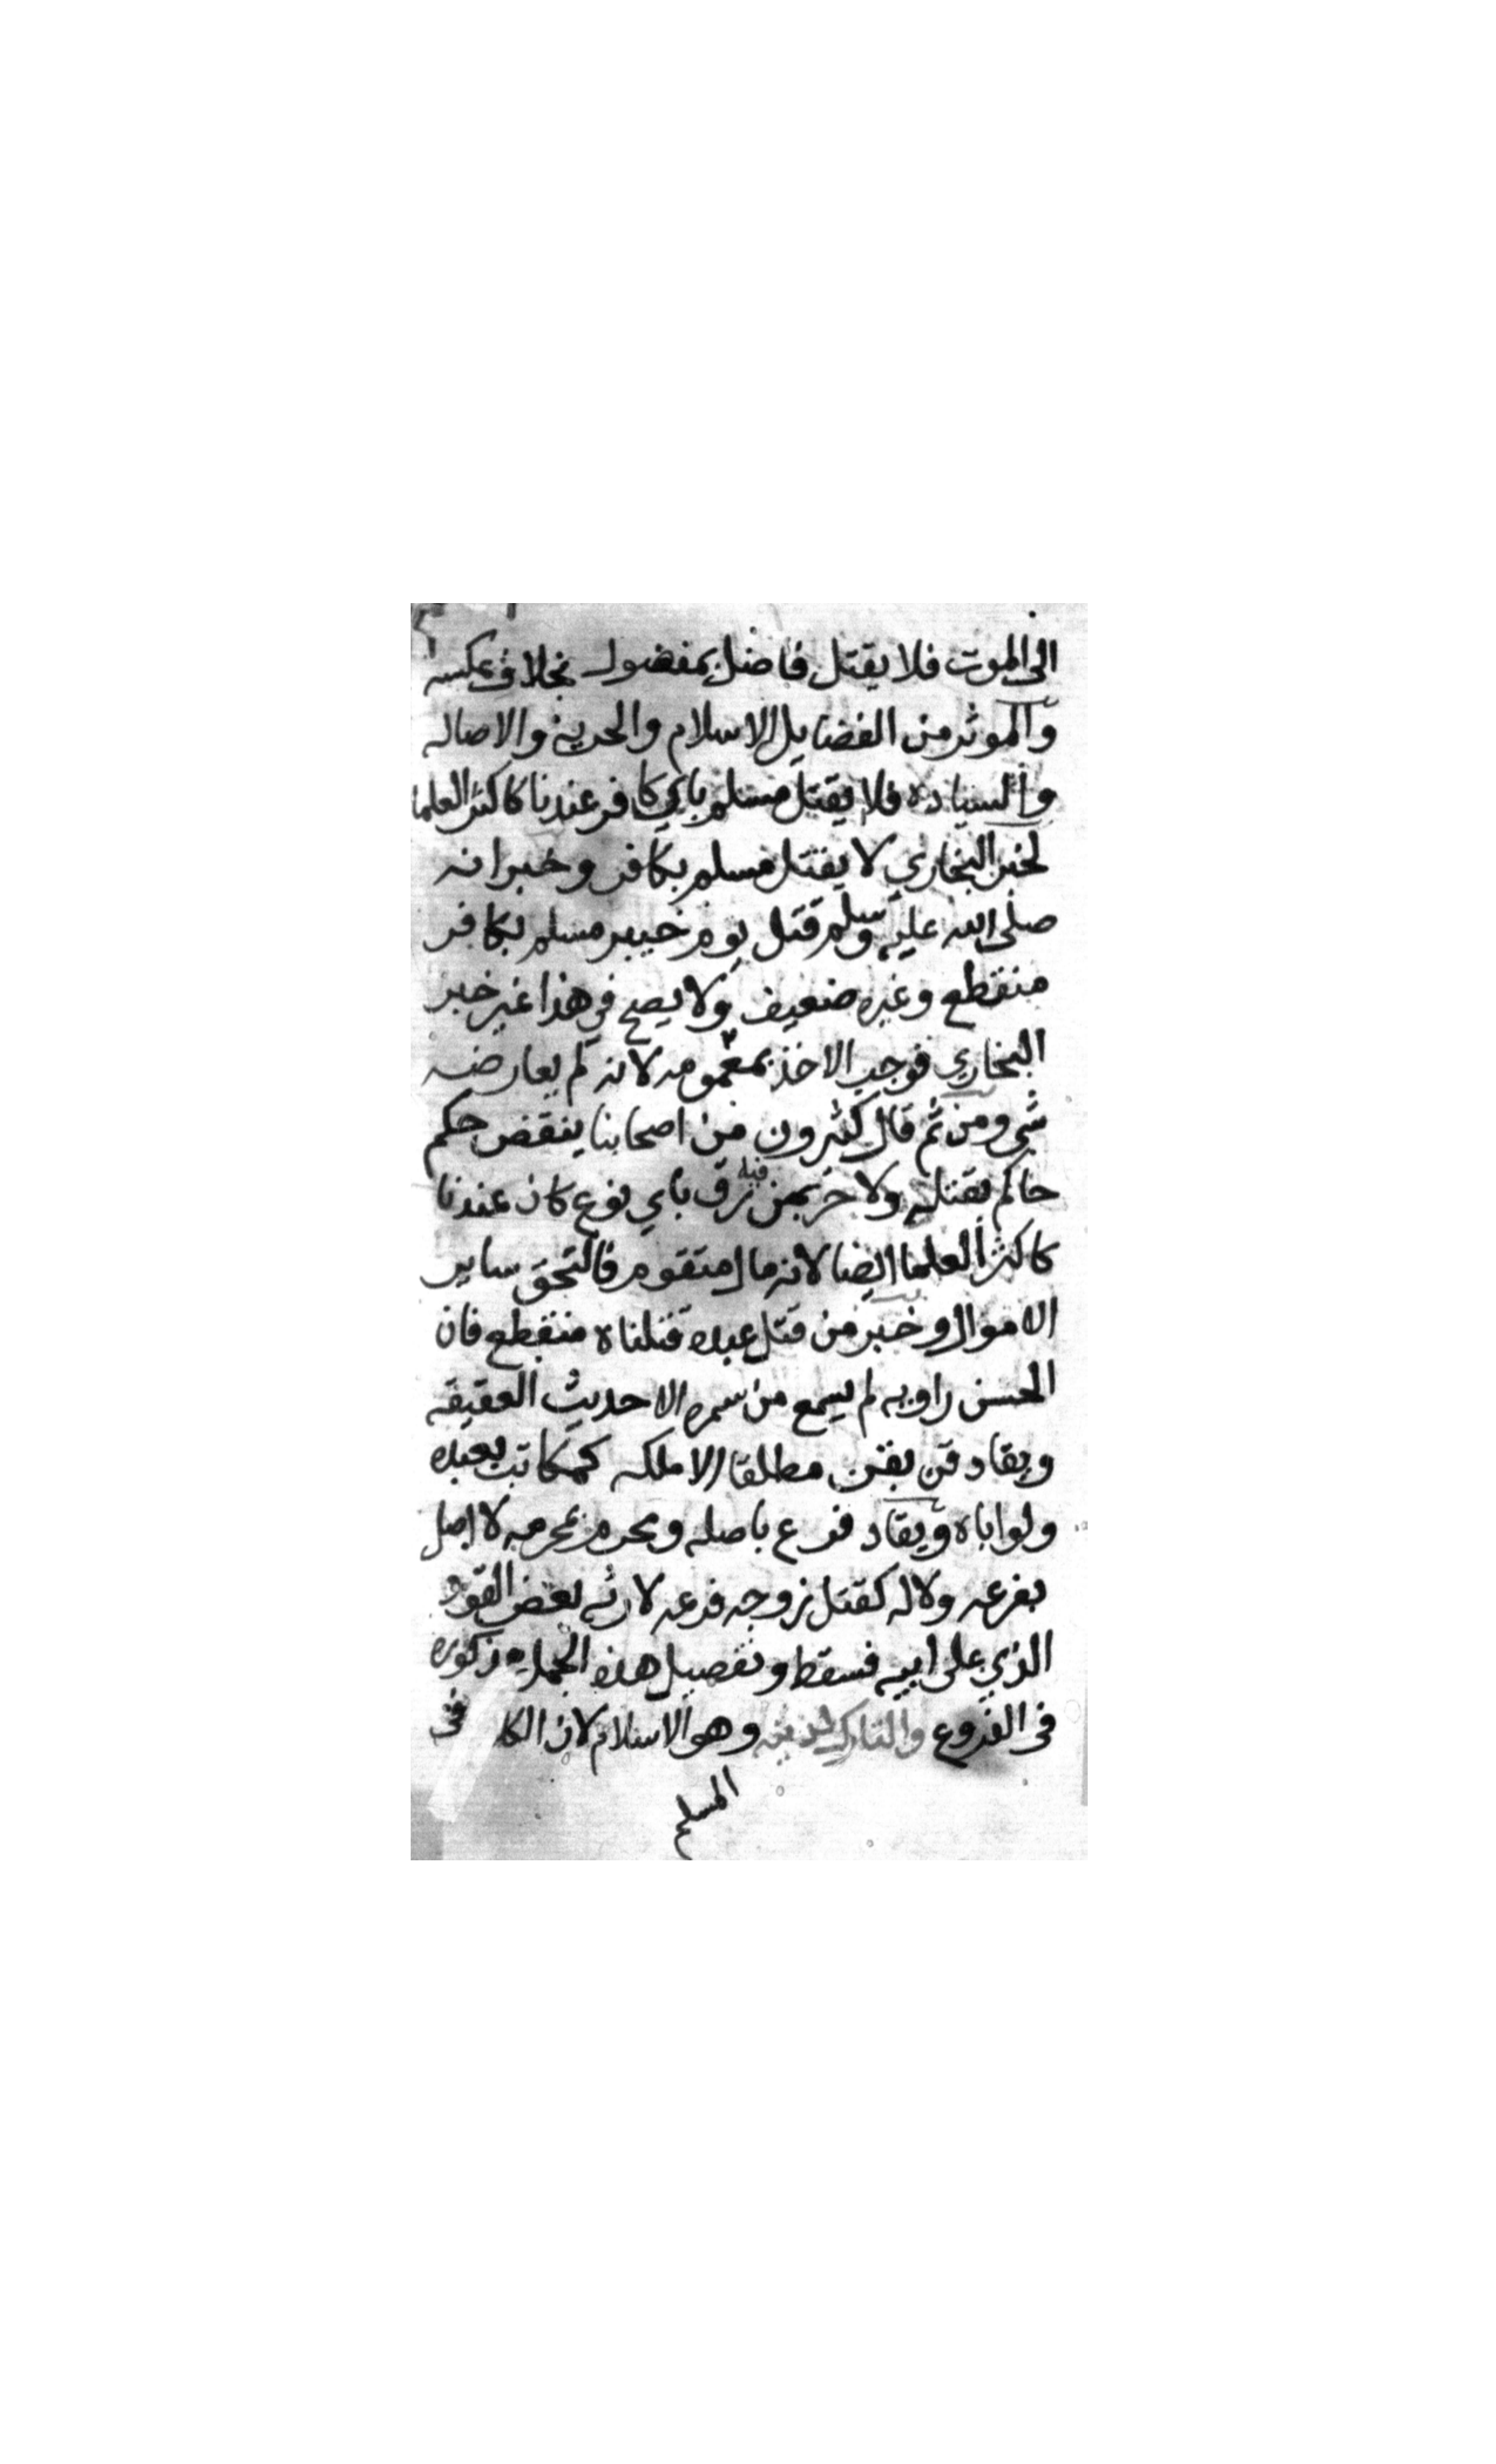 الى الموت فلا يقتل فاضل بمفضول بخلاف عكسه
والموثر من الفضايل الاسلام والحرية والاصاله
والسياده فلا يقتل مسلم باي كافر عندنا كاكثر العلما
لخبر البخاري لا يقتل مسلم بكافر وخبر انه
صلى الله عليه وسلم قتل يوم خيبر مسلم بكافر
منقطع وغيره ضعيف ولا يصح في هذا غير خبر
البخاري فوجب الاخذ بعمومه لانه لم يعارضه
شي ومن ثم قال كثرون من اصحابنا ينقض حكم
حاكم بقتله ولا حر بمن فيه رق باي نوع كان عندنا
كاكثر العلما ايضا لانه مال متقوم فالتحق ساير
الاموال وخبر من قتل عبده قتلناه منقطع فان
الحسن راويه لم يسمع من سمره الا حديث العقيقه
ويقاد قن بقن مطلقا الا ملكه كمكاتب بعبده
ولو اباه ويقاد فرع باصله ومحرم بمحرمه لا اصل
بفرعه ولا له كقتل زوجه فرعه لارثه بعض القود
الذي على ابيه فسقط وتفصيل هذه الجمله مذكوره
في الفروع والتارك لدينه وهو الاسلام لان الكلا في
المسلم